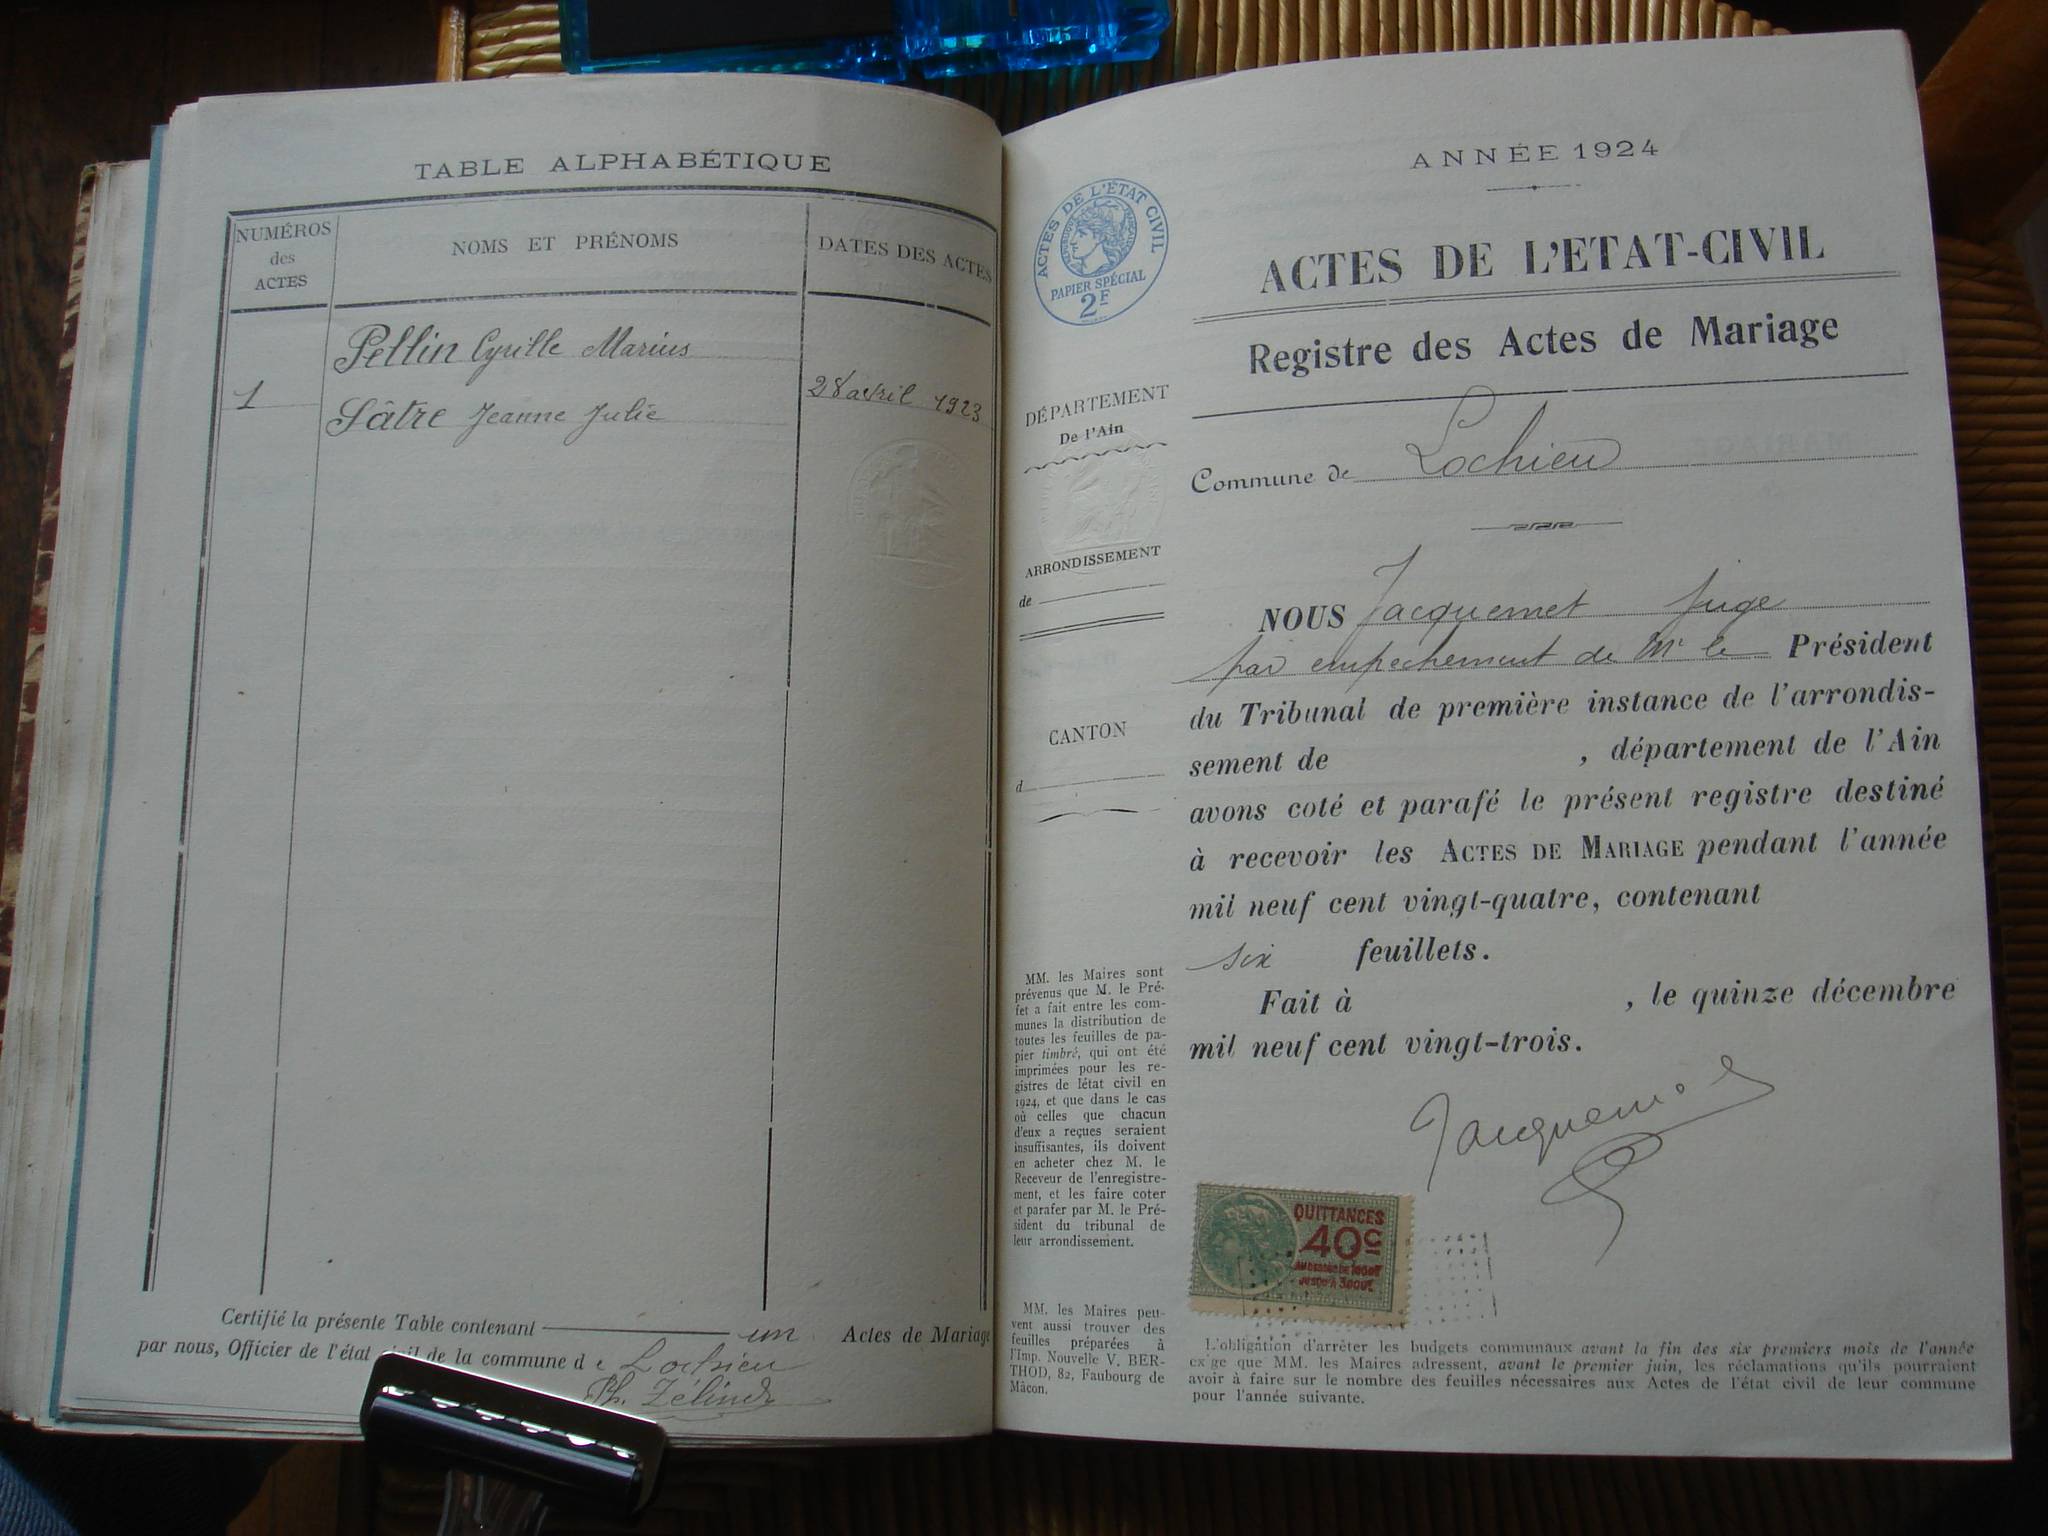 TABLE ALPHABÉTIQUE
NUMÉROS
des
ACTES
NOMS ET PRÉNOMS
DATES DES ACTES
Pellin Cyrille Marius
1
28 avril 1923
Sâtre Jeanne Julie
Certifié la présente Table contenant un Actes de Mariage
par nous, Officier de l'état civil de la commune d e Lochieu
Ph. Zélindr
ANNÉE 1924
ACTES DE L'ÉTAT CIVIL
RÉPUBLIQUE FRANÇAISE
PAPIER SPÉCIAL
2F
ACTES DE L'ETAT-CIVIL
Registre des Actes de Mariage
DÉPARTEMENT
De l'Ain
ARRONDISSEMENT
de
CANTON
d
MM. les Maires sont
prévenus que M. le Pré-
fet a fait entre les com-
munes la distribution de
toutes les feuilles de pa-
pier timbré, qui ont été
imprimées pour les re-
gistres de l'état civil en
1924, et que dans le cas
où celles que chacun
d'eux a reçues seraient
insuffisantes, ils doivent
en acheter chez M. le
Receveur de l'enregistre-
ment, et les faire coter
et parafer par M. le Pré-
sident du tribunal de
leur arrondissement.
MM. les Maires peu-
vent aussi trouver des
feuilles préparées à
l'Imp. Nouvelle V. BER-
THOD, 82, Faubourg de
Mâcon.
Commune de Lochieu
NOUS Jacquemet juge
par empechement de Mr le Président
du Tribunal de première instance de l'arrondis-
sement de , département de l'Ain
avons coté et parafé le présent registre destiné
à recevoir les ACTES DE MARIAGE pendant l'année
mil neuf cent vingt-quatre, contenant
six feuillets.
Fait à , le quinze décembre
mil neuf cent vingt-trois.
Jacquemet
QUITTANCES
40c
AU DESSUS DE 1000F
JUSQU'À 3000F
L'obligation d'arrêter les budgets communaux avant la fin des six premiers mois de l'année
exige que MM. les Maires adressent, avant le premier juin, les réclamations qu'ils pourraient
avoir à faire sur le nombre des feuilles nécessaires aux Actes de l'état civil de leur commune
pour l'année suivante.